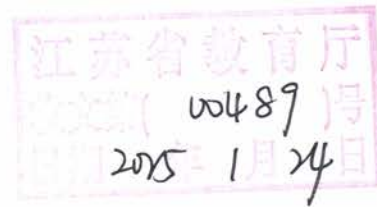 江苏省教育厅
( 00489 )号
日期 2025 年 1 月 24 日